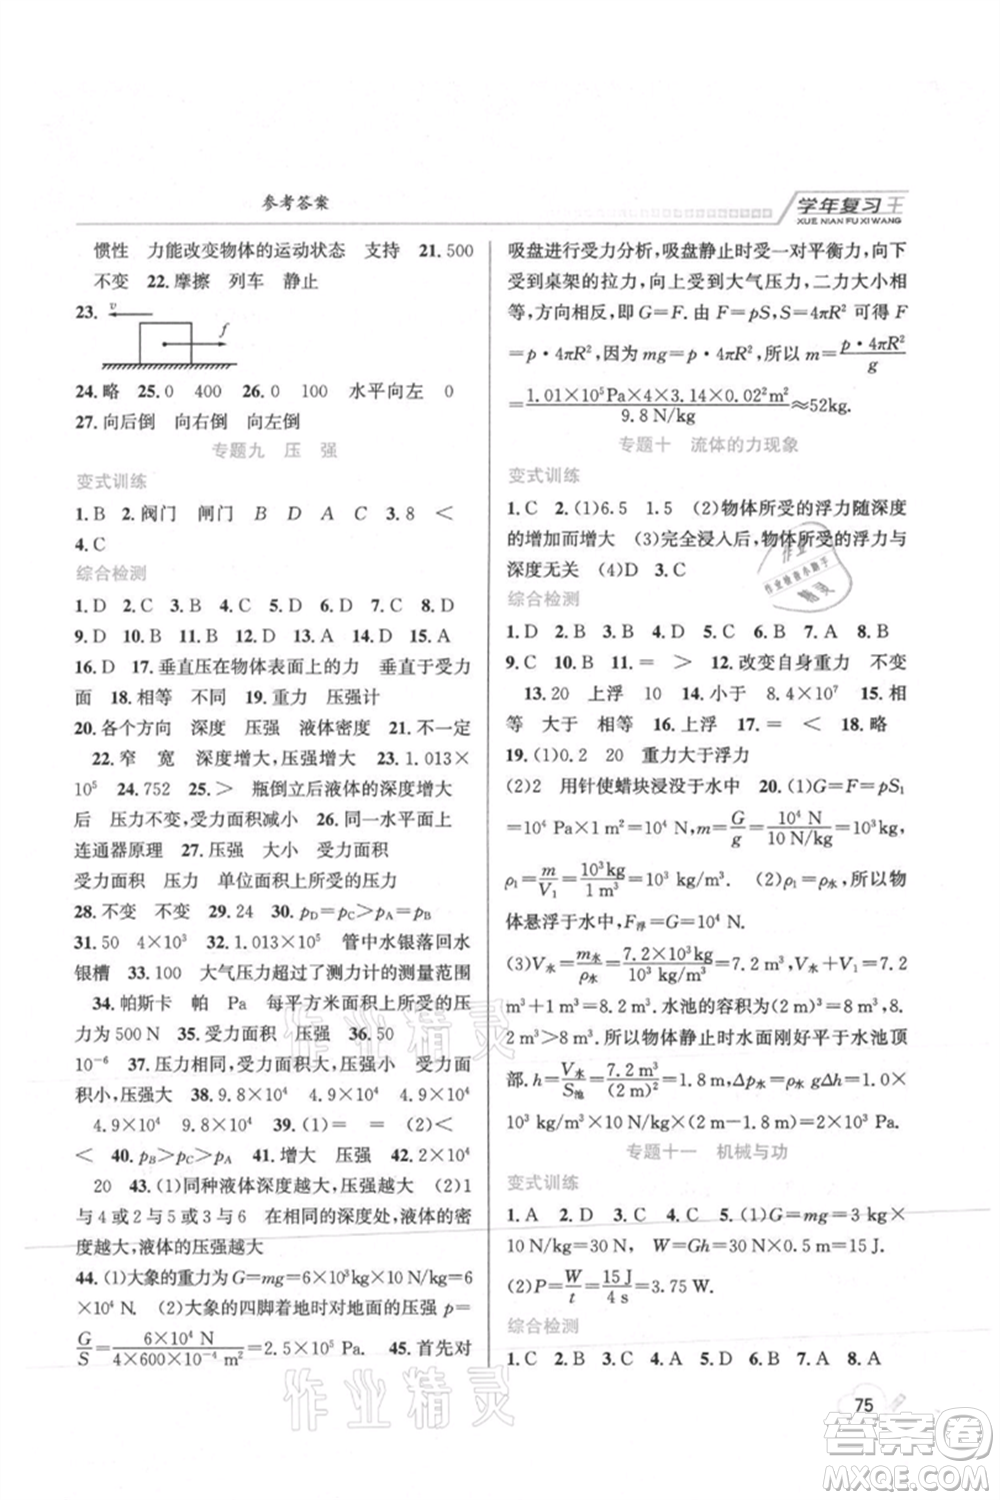 参考答案
学年复习王
XUE NIAN FU XI WANG
惯性 力能改变物体的运动状态 支持 21.500
不变 22.摩擦 列车 静止
23. v f
24.略 25.0 400 26.0 100 水平向左 0
27.向后倒 向右倒 向左倒
专题九 压 强
变式训练
1.B 2.阀门 闸门 B D A C 3.8 <
4.C
综合检测
1.D 2.C 3.B 4.B 5.A 6.C 7.C 8.D
9.D 10.D 11.B 12.D 13.A 14.D 15.A
16.D 17.垂直压在物体表面上的力 垂直于受力
面 18.相等 不同 19.重力 压强计
20.各个方向 深度 压强 液体密度 21.不一定
22.窄 宽 深度增大,压强增大 23.1.013×
10⁵ 24.752 25.> 瓶倒立后液体的深度增大
后 压力不变,受力面积减小 26.同一水平面上
连通器原理 27.压强 大小 受力面积
受力面积 压力 单位面积上所受的压力
28.不变 不变 29.24 30.p_D=p_C>p_A=p_B
31.50 4×10³ 32.1.013×10⁵ 管中水银落回水
银槽 33.100 大气压力超过了测力计的测量范围
34.帕斯卡 帕 Pa 每平方米面积上所受的压
力为500 N 35.受力面积 压强 36.50
10⁻⁶ 37.压力相同,受力面积越小 压强越大 受力面
积越小,压强越大 38.9.8×10³ 9.8×10³
4.9×10³ 4.9×10³ 39.(1)= = (2)< <
< 40.p_B>p_C>p_A 41.增大 压强 42.60
20 43.(1)同种液体深度越大,压强越大 (2)1
与4或2与5或3与6 在相同的深度处,液体的密
度越大,液体的压强越大
44.(1)大象的重力为G=mg=6×10³kg×10N/kg=6
×10⁴N. (2)大象的四脚着地时对地面的压强p=
G/S=6×10⁴ N/4×600×10⁻⁴ m²=2.5×10⁵ Pa. 45.首先对
吸盘进行受力分析,吸盘静止时受一对平衡力,向下
受到桌架的拉力,向上受到大气压力,二力大小相等,
方向相反,即G=F.由F=pS,S=4πR²可得F
=p·4πR²,因为mg=p·4πR²,所以m=p·4πR²/g
=1.01×10⁵Pa×4×3.14×0.02²m²/9.8 N/kg≈52kg.
专题十 流体的力现象
变式训练
1.C 2.(1)6.5 1.5 (2)物体所受的浮力随深度
的增加而增大 (3)完全浸入后,物体所受的浮力与
深度无关 (4)D 3.C
综合检测
1.D 2.B 3.B 4.D 5.C 6.D 7.A 8.B
9.C 10.A 11.= > 12.改变自身重力 不变
13.20 上浮 10 14.小于 8.4×10⁷ 15.相
等 大于 相等 16.上浮 17.= < 18.略
19.(1)0.2 20 重力大于浮力
(2)2 用针使蜡块浸没于水中 20.(1)G=F=pS₁
=10⁴ Pa×1 m²=10⁴ N,m=G/g=10⁴ N/10 N/kg=10³kg,
ρ₁=m/V₁=10³kg/1 m³=10³kg/m³. (2)因为ρ₁=ρ水,所以物
体悬浮于水中,F浮=G=10⁴ N.
(3)V水=m水/ρ水=7.2×10³ kg/10³kg/m³=7.2 m³,V水+V₁=7.2
m³+1 m³=8.2 m³,水池的容积为(2 m)³=8 m³,
8.2 m³>8 m³.所以物体静止时水面刚好平于水池顶
部.h=V水/S池=7.2 m³/(2 m)²=1.8 m,Δp水=ρ水gΔh=
10³kg/m³×10N/kg×(2 m−1.8 m)=2×10³ Pa.
专题十一 机械与功
变式训练
1.A 2.D 3.D 4.C 5.(1)G=mg=3kg×
10N/kg=30 N W=Gh=30 N×0.5 m=15 J
(2)P=W/t=15 J/4 s=3.75 W.
综合检测
1.C 2.A 3.B 4.A 5.B 6.C 7.A 8.A
75
作业精灵
作业精灵
作业
作业检查小助手
精灵
答案圈
MXQE.COM